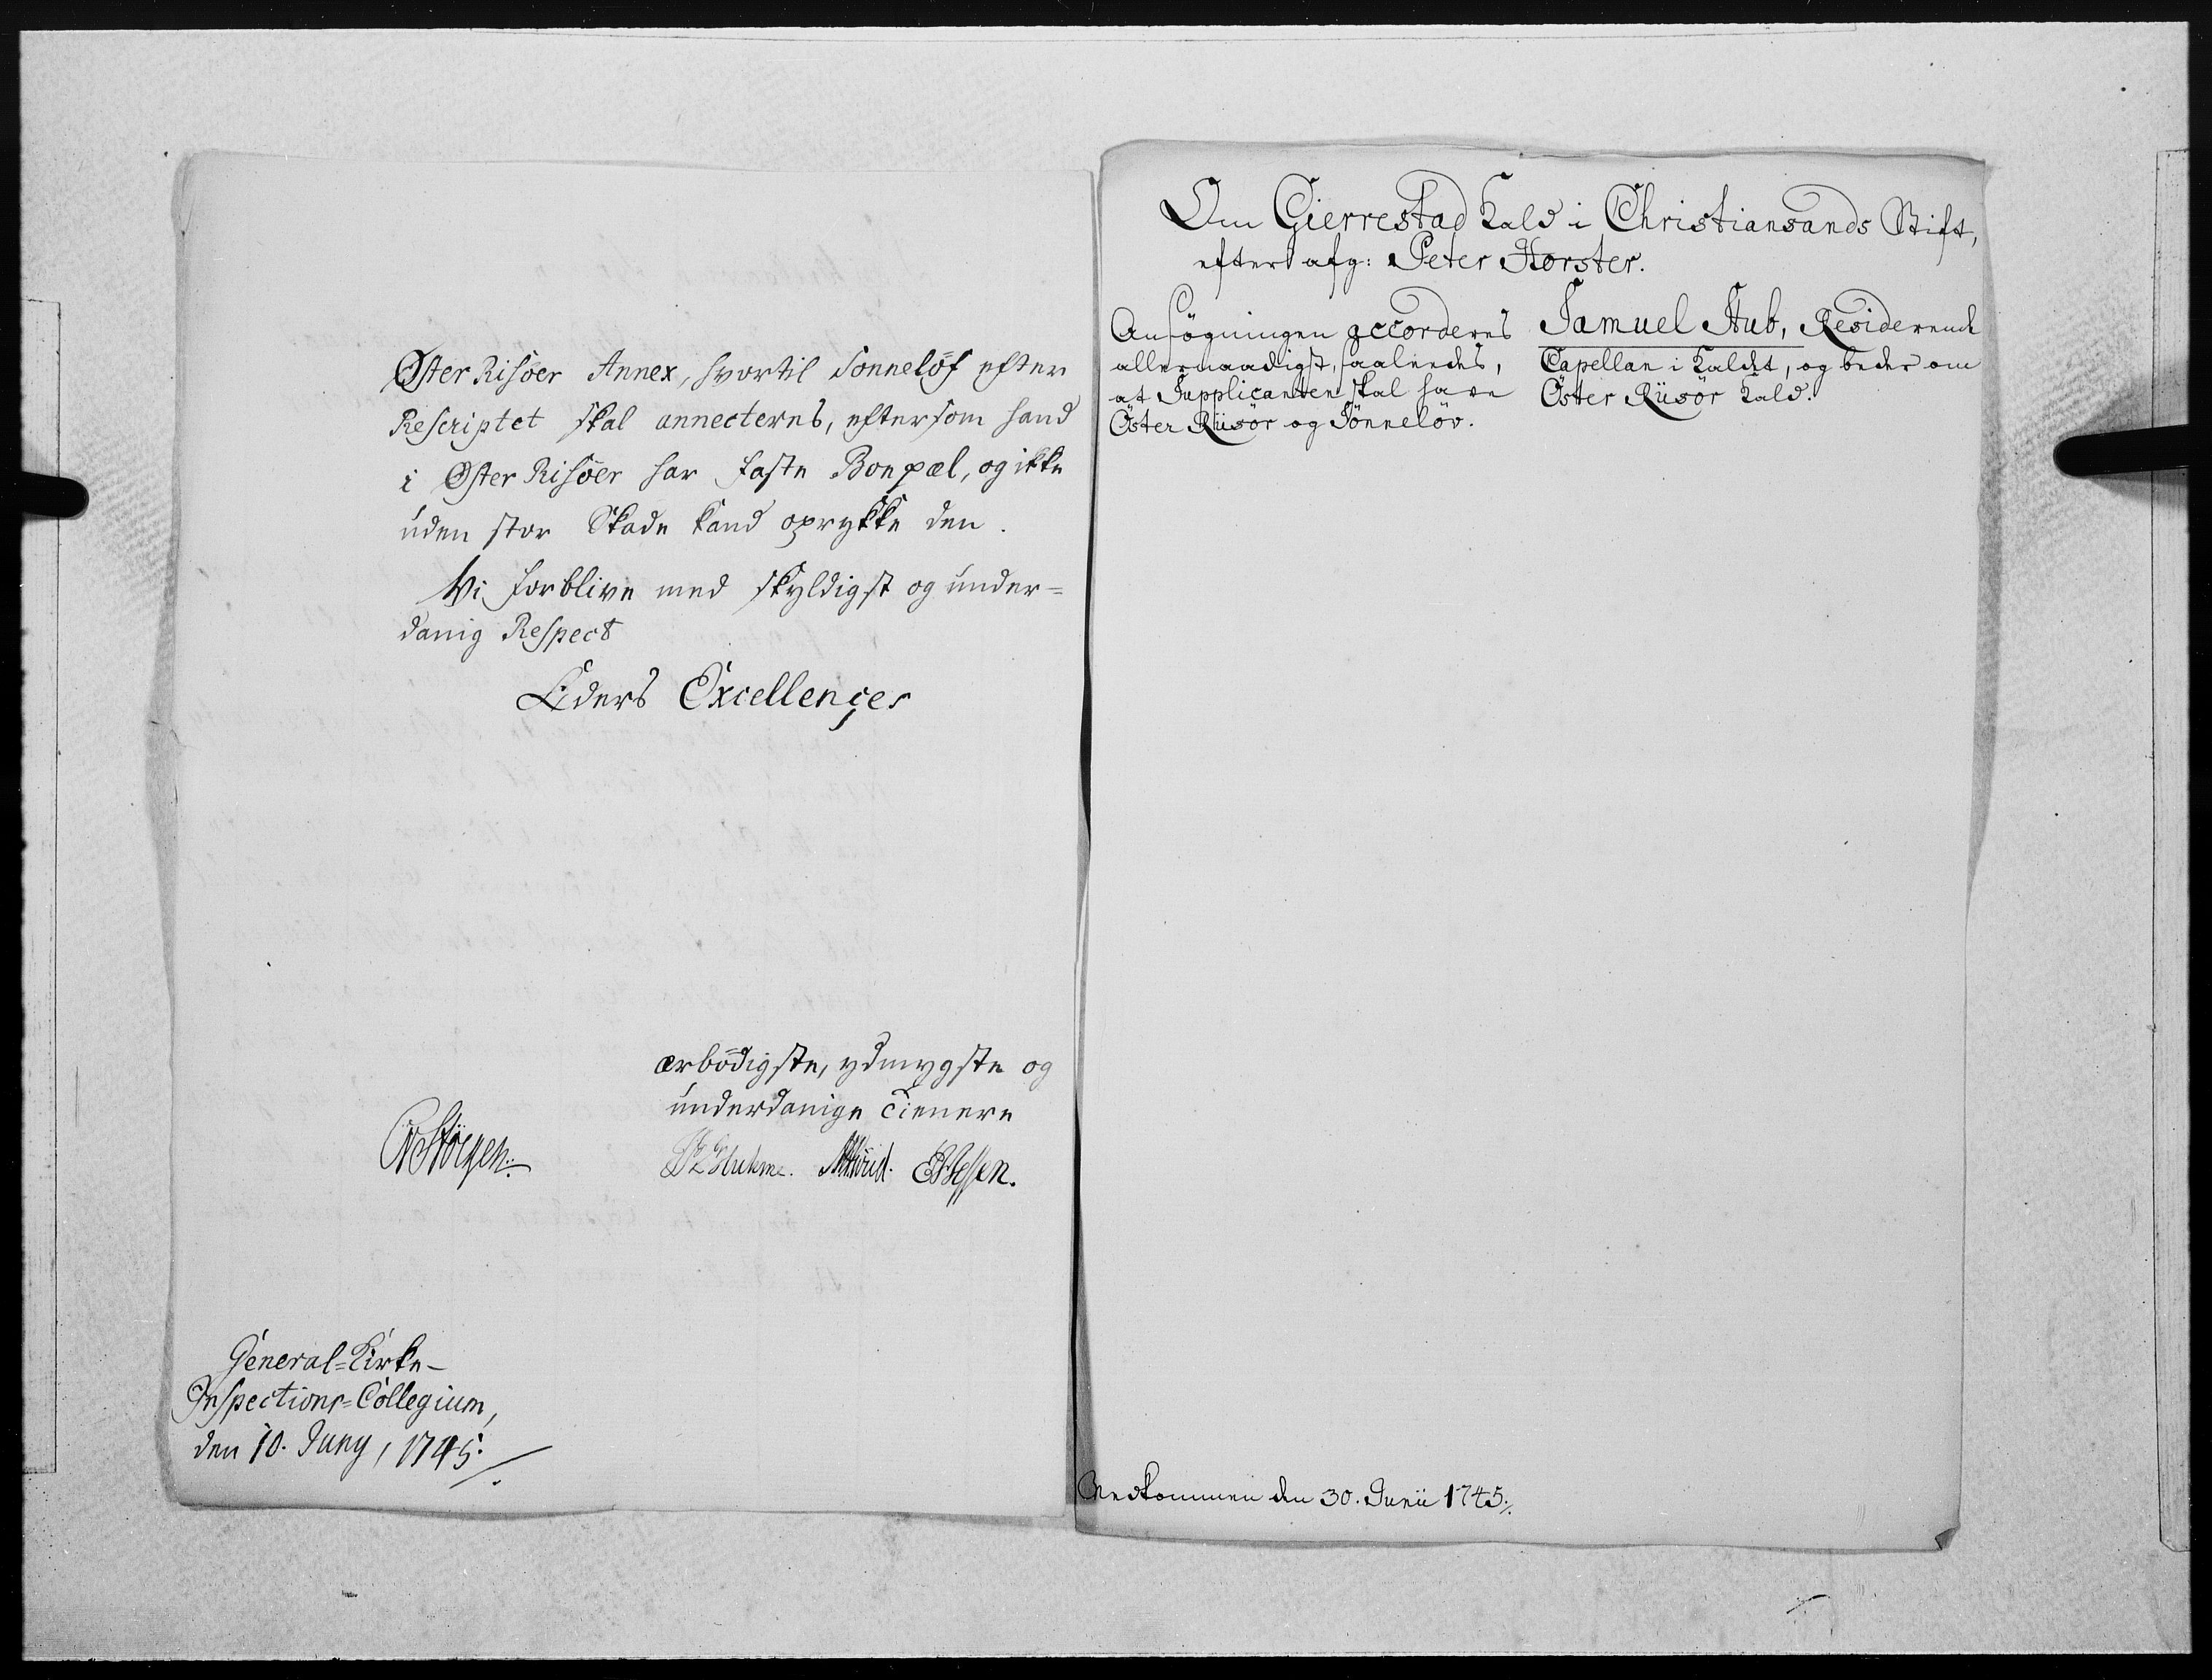 Øster Risöer Annex, hvortil Sonnelöf efter
Rescriptet skal annecteres, eftersom hand
i Øster Risöer har faste Boepæl, og ikke
uden stor Skade kand oprykke den.
Vi forblive med skyldigst og under=
danig Respect
Eders Excellences
ærbödigste, ydmygste og
underdanige tienere
General=Kirke-
Inspections=Collegium,
den 10. Juny, 1745.
Om Gierrestad Kald i Christiansands Stift,
efter afg: Peter Horster.
Ansögningen accorderes
allernaadigst, saaledes,
at Supplicanten skal have
Öster Riisör og Sönnelöv.
Samuel Stub, Residerende
Capellan i Kaldet, og beder om
Öster Riisör Kald.
Nedkommen den 30. Junii 1745./.